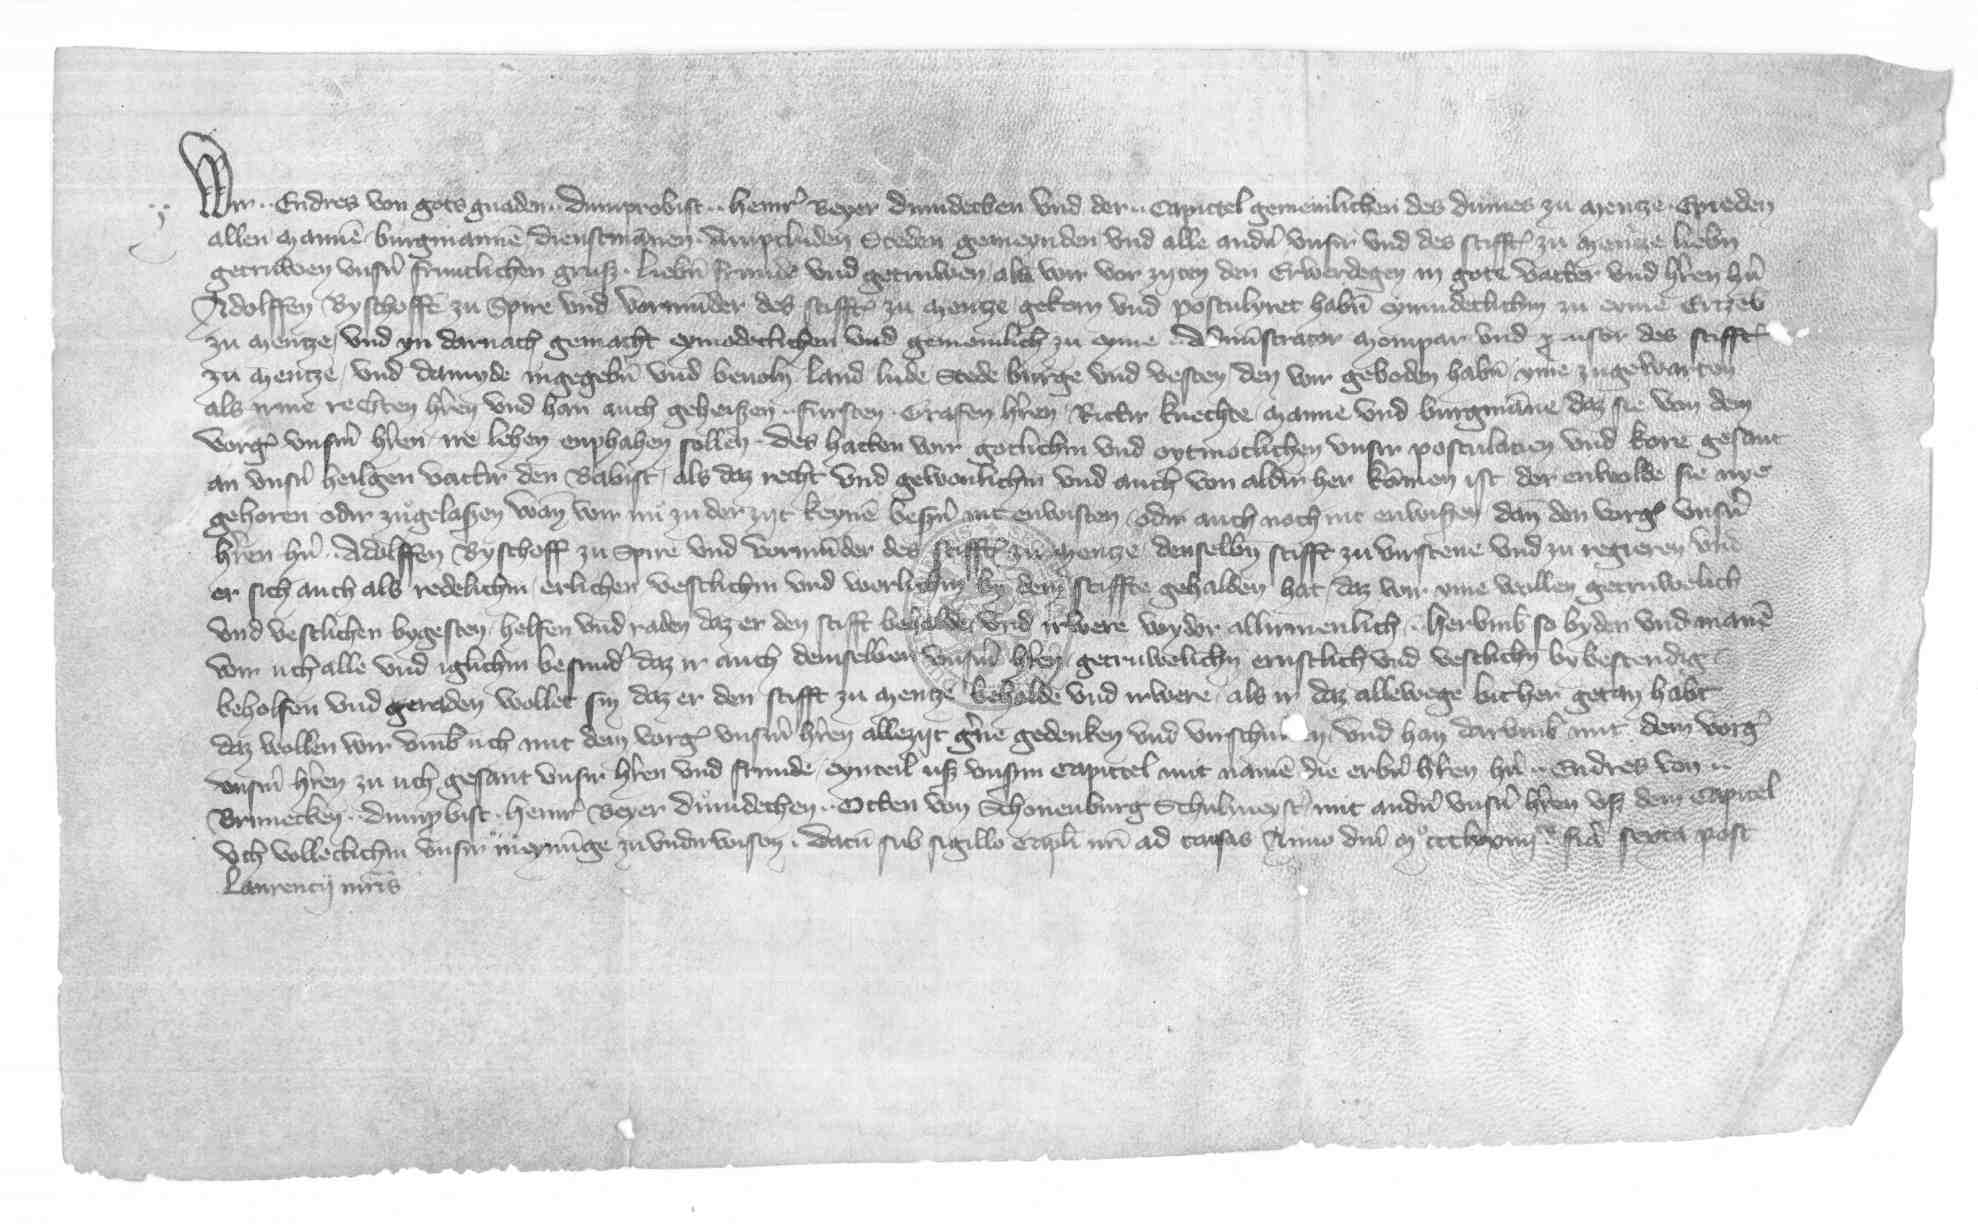 Wir ·· Endres von gots gnaden ·· Dumprobist ·· Heinr̄ Beyer Dumdecken vnd der ·· Capittel gemeinlichen des dumes zu Mencze · Enpieden
allen Mannē / burgmannē / dienstmānen · Amptluden Steden gemeynden vnd alle andn̄ vnsn̄ vnd des stifftꝭ zu Mencze liebn̄
getruwen vnsn̄ fruntlichen grusz · liebn̄ frunde vnd getruwen / als wir vor zijten den Erwerdegen in gote vatter vnd hr̄ren hn̄
Adolffen / Byschoffē zu Spire vnd vormūder des stifftꝭ zu Mencze / gekorn vnd postulyret habn̄ eynmudeclichin zu eyme Ertzeb̄
zu Mencze / vnd yn darnach gemacht eymodeclichen vnd gemeinlich zu eyme · Mompar vnd des stifftꝭ
zu Mencze / vnd damyde ingegebn̄ vnd beuoln̄ land lude Stede burge vnd vesten / den wir geboden habn̄ yme zugewarten
als irme rechten hr̄ren vnd han auch geheiszen ·· fursten · Grafen hr̄ren / Rittir knechte / Manne vnd burgmāne daz sie von dem
vorgꝭ vnsm̄ hr̄ren ire lehen enphahen sollen · des hatten wir gotlichin vnd otmotlichen vnsir postulacien vnd kore gesant
an vnsn̄ heilgen vattir den Babist / als daz recht vnd gewonlichin vnd auch von aldir her kōmen ist der enwolde sie nye
gehoren odir zugelaszen wan̄ wir nu zu der zijt keynē bessn̄ nit enwisten / odir auch noch nit enwiszen dan̄ den vorgꝭ vnsn̄
hr̄ren hn̄ · Adolffen Byschoff zu Spire vnd vormūder des stifftꝭ zu Mencze / denselbn̄ stifft zu virstene vnd zu regieren vnd
er sich auch als redelichin / erlichen vestlichin vnd werlichin by dem stiffte gehalden hat / daz wir yme wollen getruwelich
vnd vestlichen bygesten / helfen vnd raden daz er den stifft behalde vnd irwere wydir allirmenlich · Hervmb so byden vnd manē
wir uch alle vnd iglichin besundꝰ daz ir auch demselben vnsm̄ hr̄ren / getruwelichn̄ ernstlich vnd vestlichn̄ bybestendig
beholfen vnd geraden wollet sin daz er den stifft zu Mencze behalde vnd irwere / als ir daz allewege bit her getan habt
daz wollen wir vmb uch mit dem vorgꝭ vnsm̄ hr̄ren allezijt gn̄e gedenken vnd / vnd han darvmb mit dem vorgꝭ
vnsm̄ hr̄ren zu uch gesant vnsir hr̄ren vnd frunde / eynteil usz vnsim Capittel mit namē die erbn̄ hr̄ren hn̄ ·· Endres von ··
Brunecken ·· dumpbist · Heinr̄ Beyer dumdechen ·· Otten von Schonenburg Schulmeystꝰ mit andn̄ vnsn̄ hr̄ren vsz dem Capitel
vch volleclichin vnsir meynūge zu vndirwisen · Datū sub sigillo Capli nr̄i ad causas Anno dn̄i Mͦ ccclxxiiijͭᵒ fīa sexta post
Laurencij mr̄is